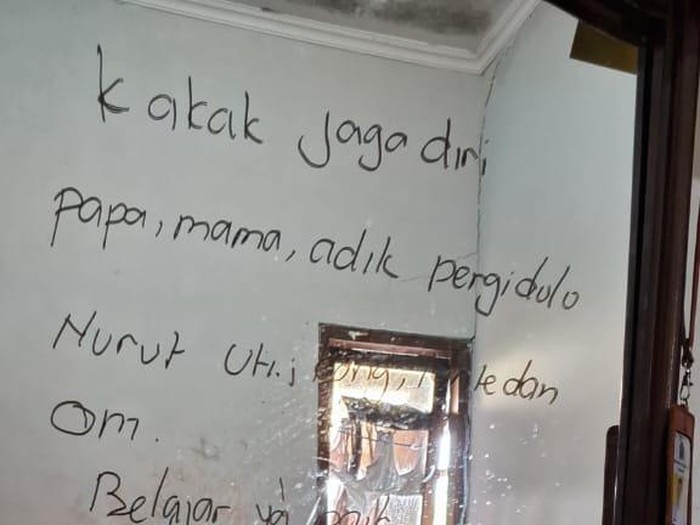 Kakak jaga diri
papa, mama, adik pergi dulo
Nurut Uti, kung, tante dan
Om.
Belajar yg baik